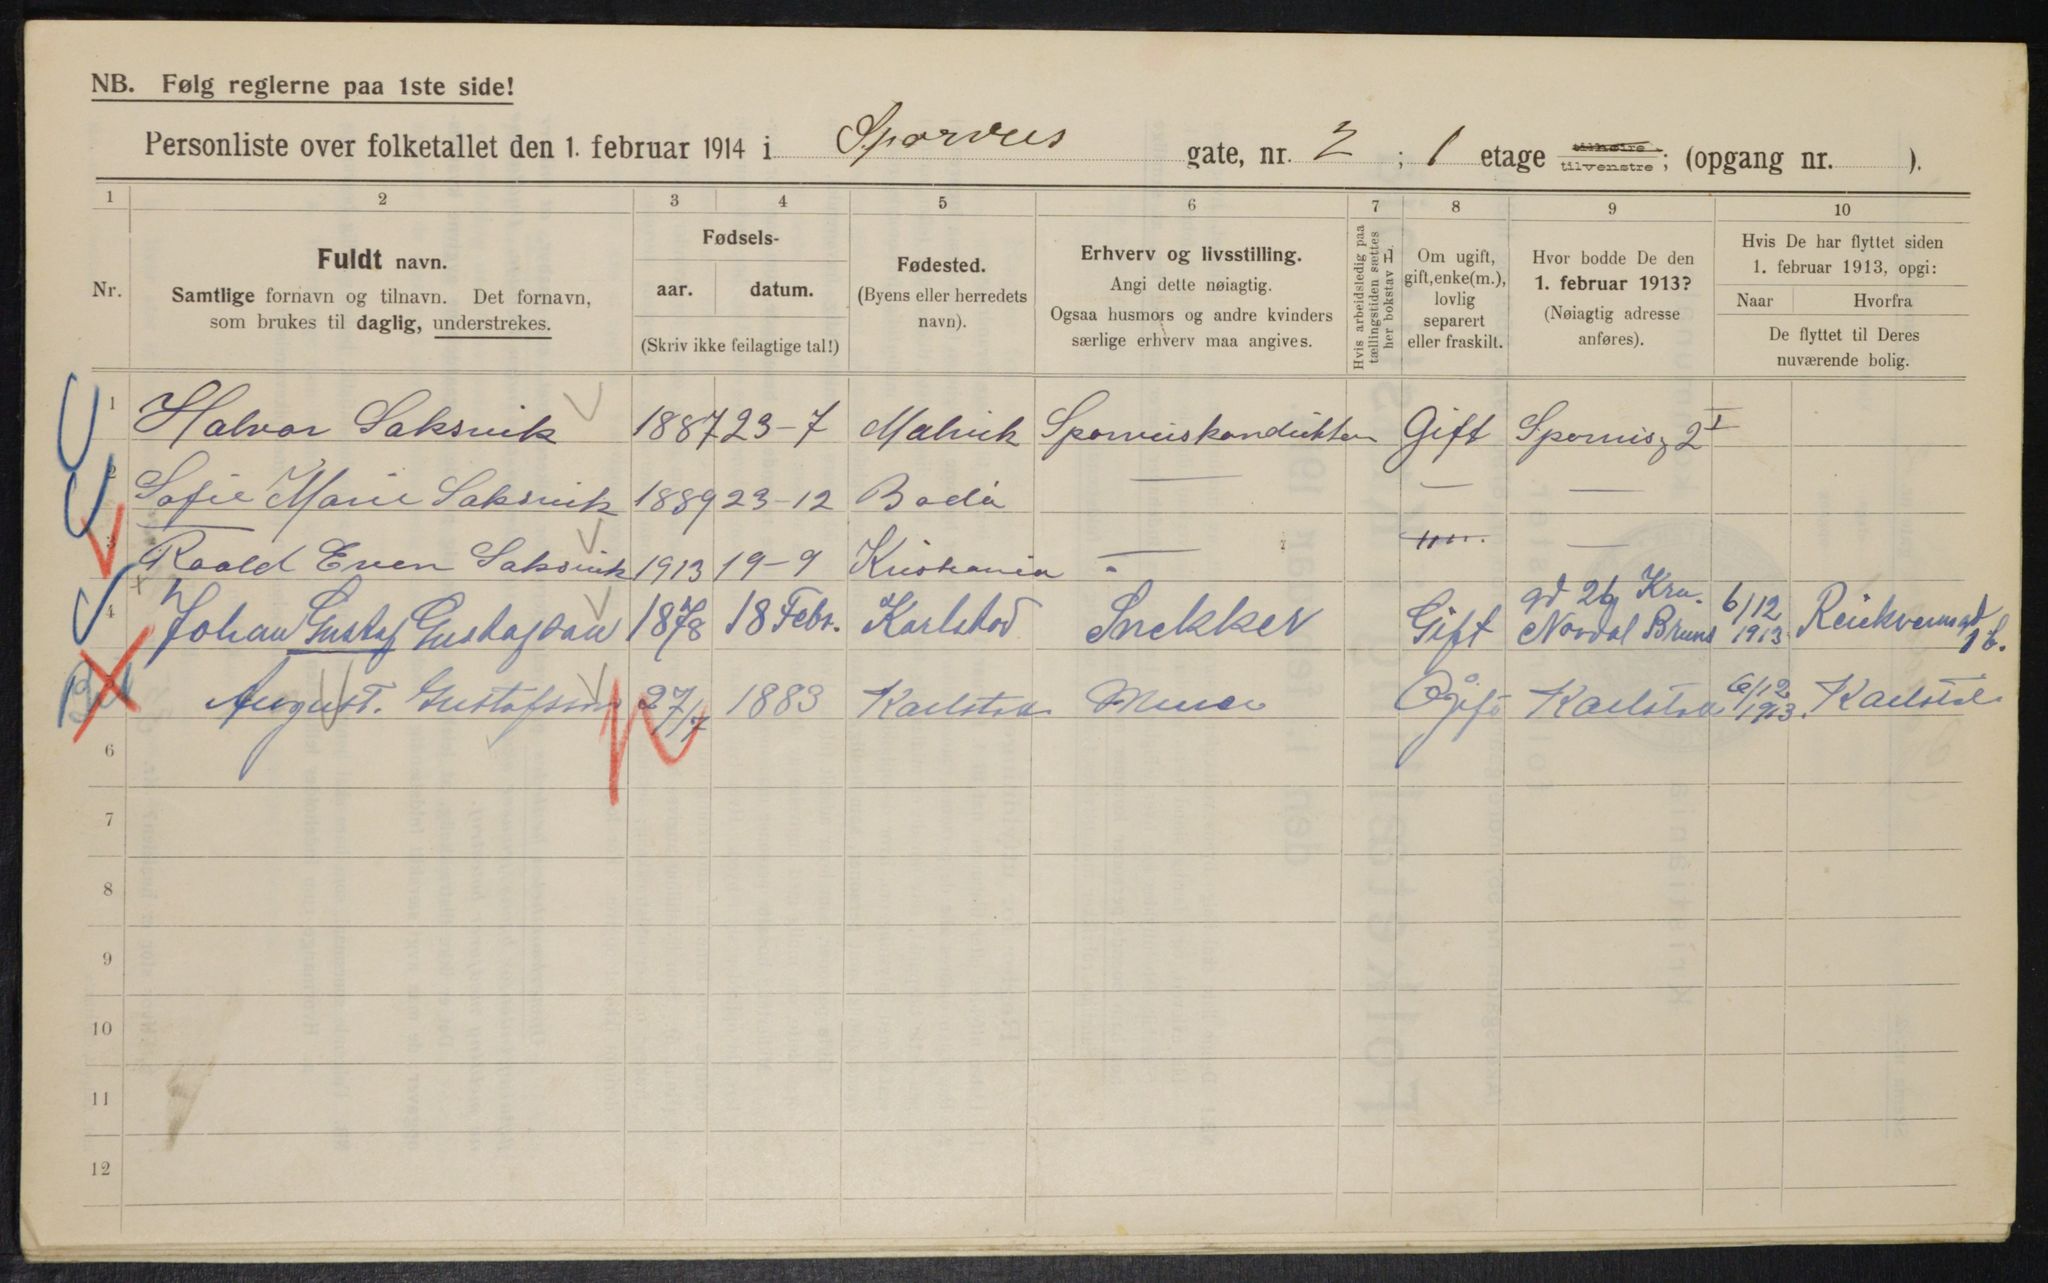 NB. Følg reglerne paa 1ste side!
Personliste over folketallet den 1. februar 1914 i Sporveis gate, nr. 2 ; 1 etage tilhøire tilvenstre; (opgang nr. ).
1 2 3 4 5 6 7 8 9 10
Nr.
Fuldt navn.
Samtlige fornavn og tilnavn. Det fornavn,
som brukes til daglig, understrekes.
Fødsels-
aar. datum.
(Skriv ikke feilagtige tal!)
Fødested.
(Byens eller herredets
navn).
Erhverv og livsstilling.
Angi dette nøiagtig.
Ogsaa husmors og andre kvinders
særlige erhverv maa angives.
Hvis arbeidsledig paa
tællingstiden sættes
her bokstav L.
Om ugift,
gift, enke(m.),
lovlig
separert
eller fraskilt.
Hvor bodde De den
1. februar 1913?
(Nøiagtig adresse
anføres).
Hvis De har flyttet siden
1. februar 1913, opgi:
Naar Hvorfra
De flyttet til Deres
nuværende bolig.
1 Halvor Saksvik 1887 23-7 Malvik Sporveiskonduktør Gift Sporveisg 2 I
2 Sofie Marie Saksvik 1889 23-12 Bodö — — —
3 Roald Even Saksvik 1913 19-9 Kristiania — —
4 Johan Gustaf Gustafson 1878 18 Febr. Karlstad Snekker Gift Nordal Bruns gd 26 Kra. 6/12 1913
August. Gustafsson 27/7 1883 Karlstad Murer Ogift Karlstad 6/12 1913. Karlstad
6
7
8
9
10
11
12